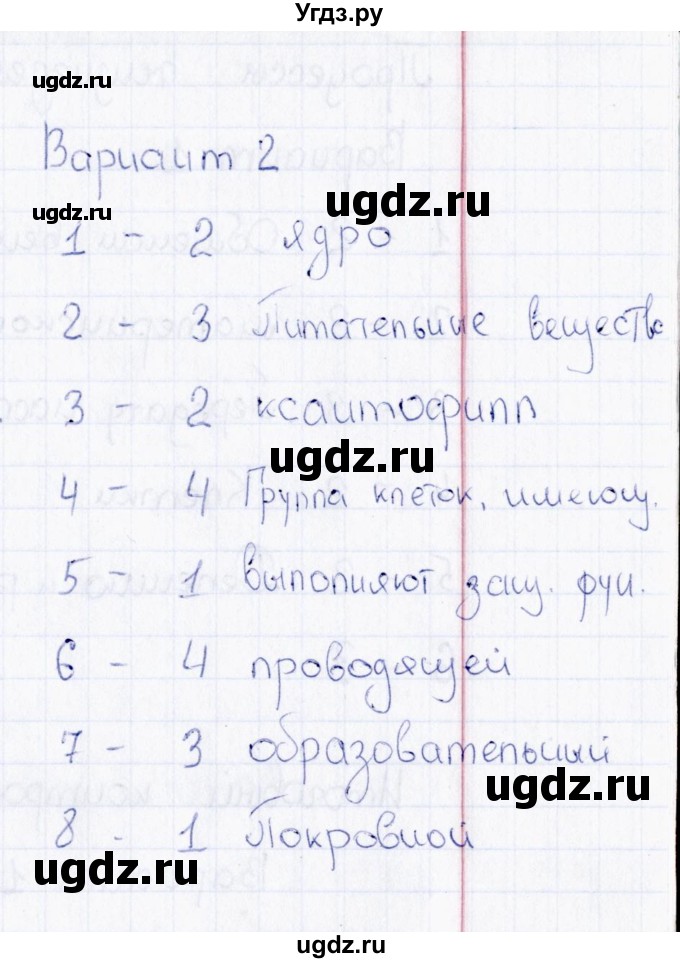 Угдз.ру
ugdz.ru
Вариант 2
ugdz.ru
ugdz.ru
1 - 2 ядро
2 - 3 Питательные веществ
3 - 2 ксантофилл
ugdz.ru
4 - 4 Группа клеток, имеющ.
5 - 1 выполняют защ. фун.
6 - 4 проводящей
ugdz.ru
7 - 3 образовательный
ugdz.ru
8 - 1 Покровной
ugdz.ru
ugdz.ru